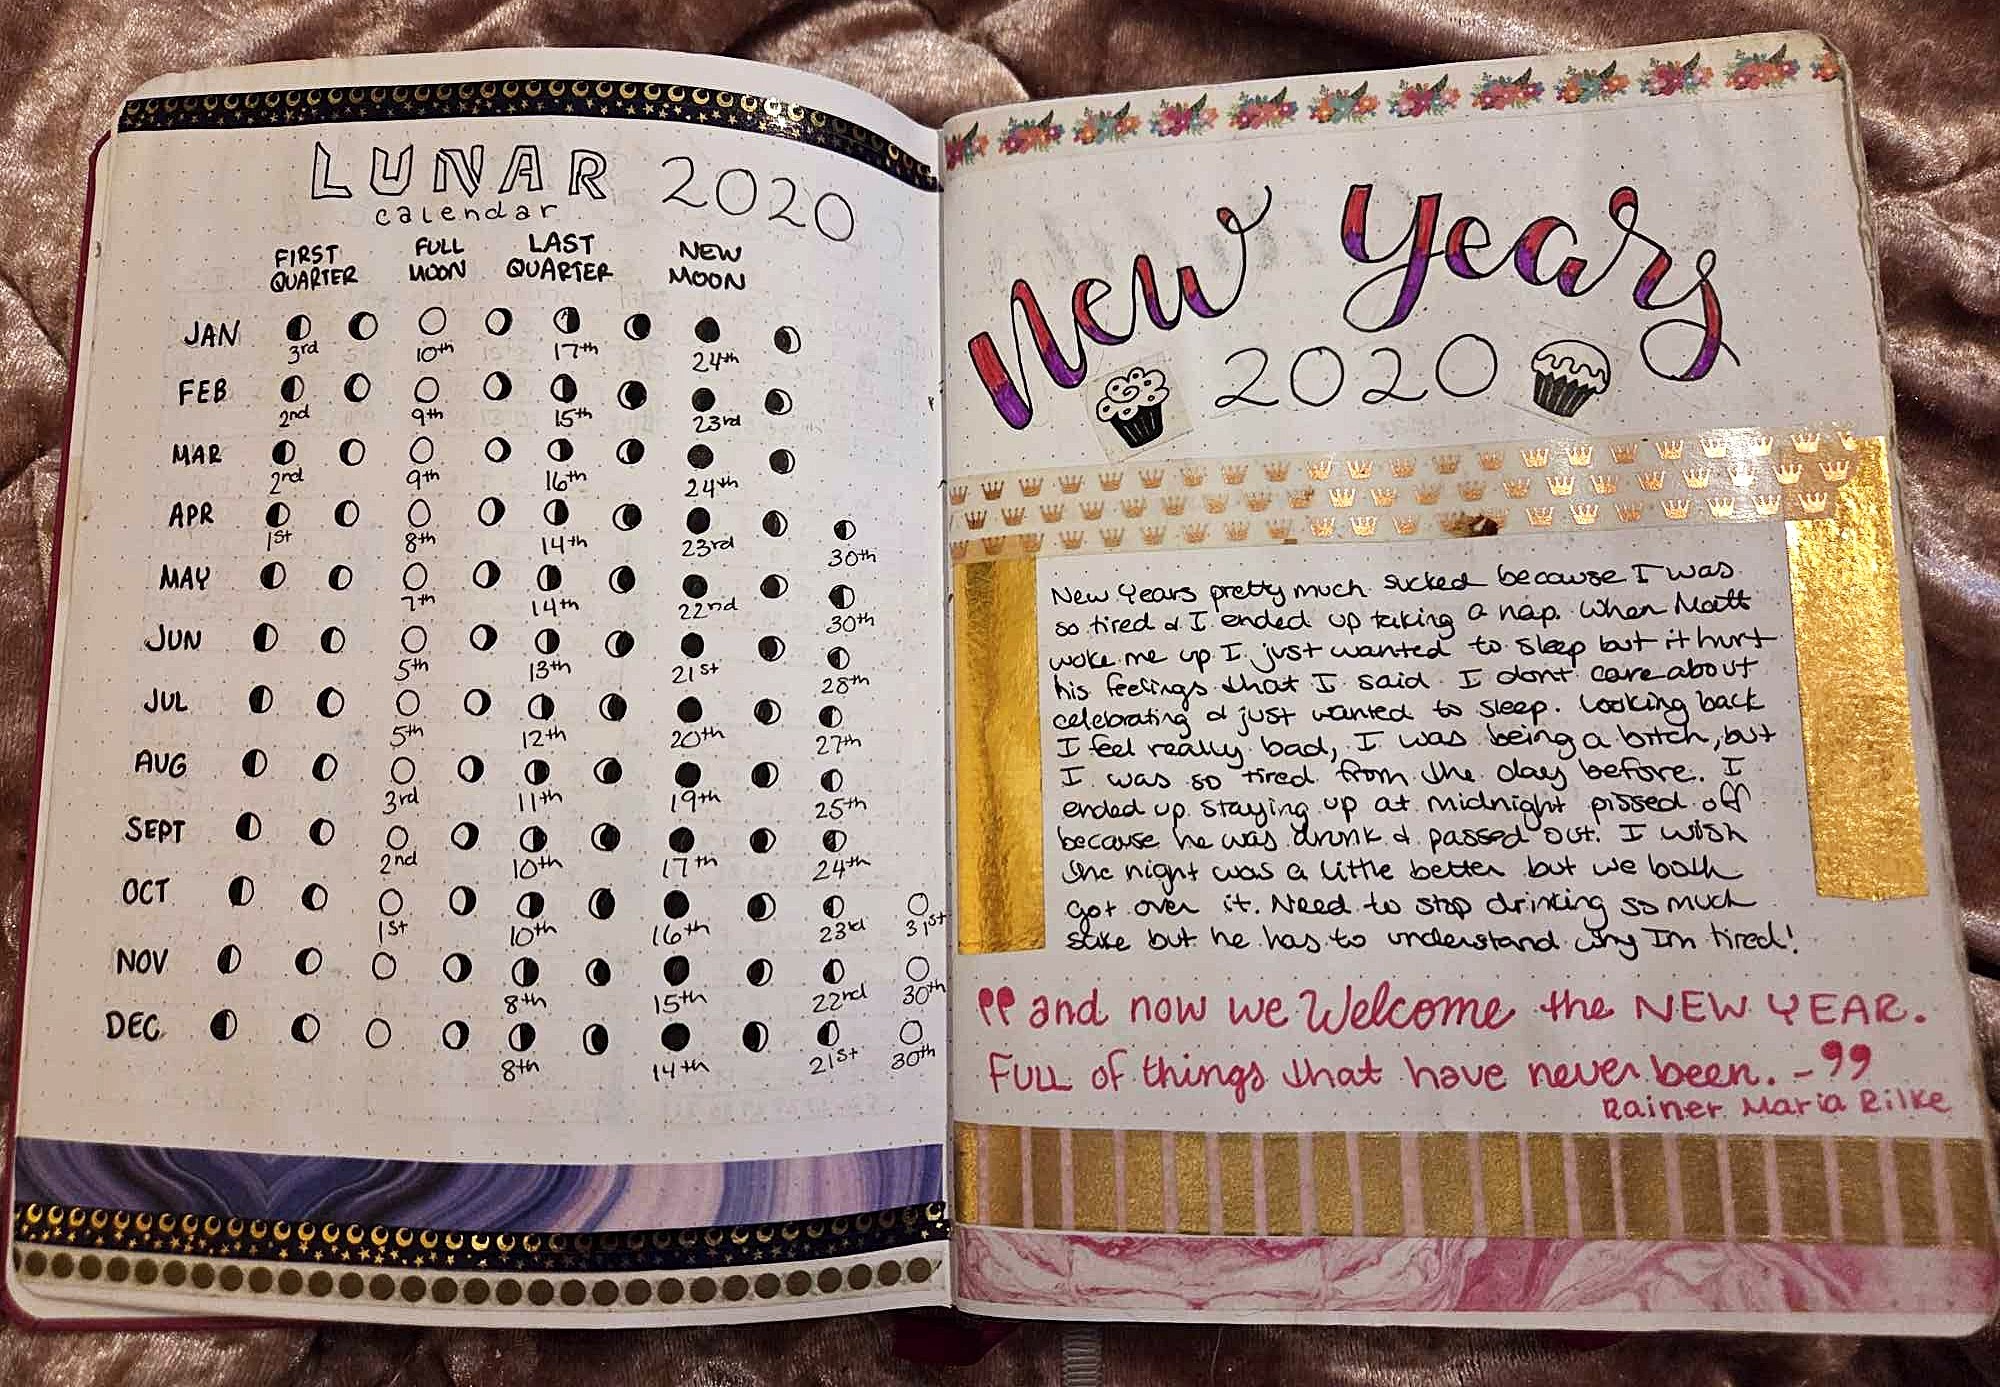 LUNAR 2020
calendar
FIRST QUARTER FULL MOON LAST QUARTER NEW MOON
JAN
3rd 10th 17th 24th
FEB
2nd 9th 15th 23rd
MAR
2nd 9th 16th 24th
APR
1st 8th 14th 23rd 30th
MAY
7th 14th 22nd 30th
JUN
5th 13th 21st 28th
JUL
5th 12th 20th 27th
AUG
3rd 11th 19th 25th
SEPT
2nd 10th 17th 24th
OCT
1st 10th 16th 23rd 31st
NOV
8th 15th 22nd 30th
DEC
8th 14th 21st 30th
New Years
2020
New Years pretty much sucked because I was
so tired & I ended up taking a nap. When Matt
woke me up I just wanted to sleep but it hurt
his feelings that I said I dont care about
celebrating & just wanted to sleep. Looking back
I feel really bad, I was being a bitch, but
I was so tired from the day before. I
ended up staying up at midnight pissed off
because he was drunk & passed out. I wish
the night was a little better but we both
got over it. Need to stop drinking so much
sake but he has to understand why Im tired!
"and now we Welcome the NEW YEAR.
FULL of things that have never been. - "
Rainer Maria Rilke